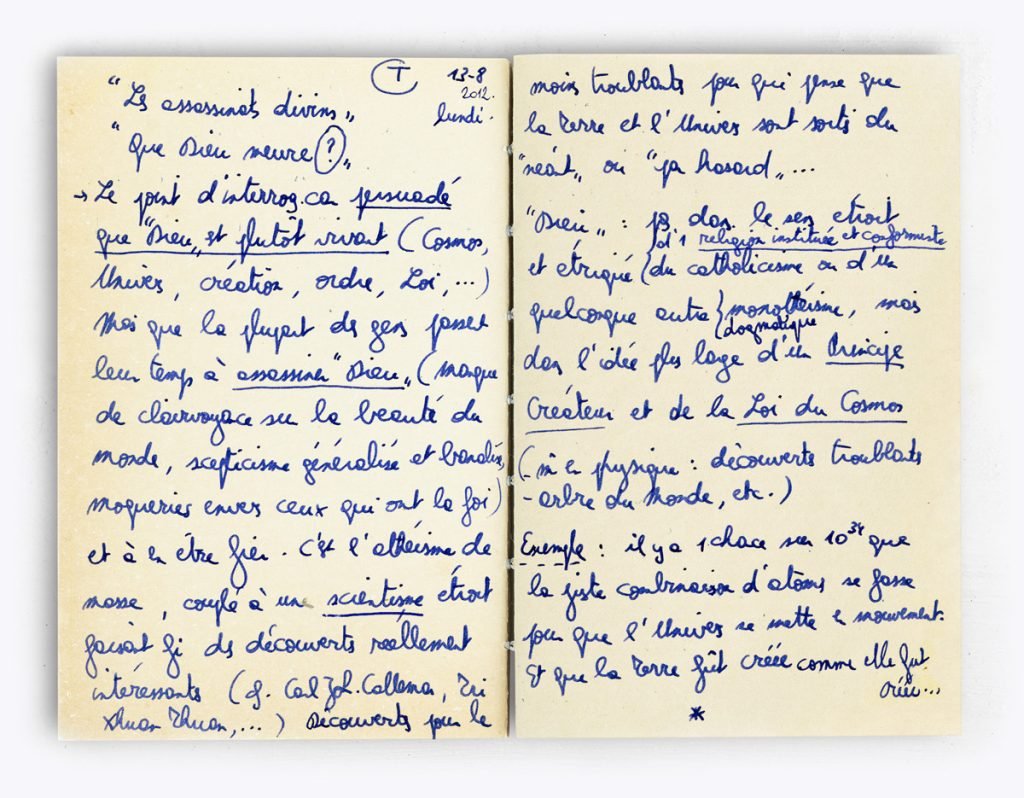 T 13-8
2012.
lundi.
"Les assassinats divins"
"Que Dieu meure ?"
→ Le point d'interrog. car persuadé
que "Dieu" est plutôt vivant (Cosmos,
Univers, création, ordre, Loi,...)
Mais que la plupart des gens passent
leur temps à assassiner "Dieu" (manque
de clairvoyance sur la beauté du
monde, scepticisme généralisé et banalisé,
moqueries envers ceux qui ont la foi)
et à en être fier. C'est l'athéisme de
masse, couplé à un scientisme étroit
faisant fi des découvertes réellement
intéressants (cf. Carl Joh. Calleman, Tri
Xhuan Thuan,...) Découvertes pour le
moins troublants pour qui pense que
la Terre et l'Univers sont sortis du
"néant" ou "par hasard"...
"Dieu" : pas dans le sens étroit
d'1 religion instituée et conformiste
et étriqué (du catholicisme ou d'un
quelconque autre monothéisme, mais
dogmatique
dans l'idée plus large d'un Principe
Créateur et de la Loi du Cosmos
(- m̂ en physique : découvertes troublants
- arbre du Monde, etc.)
Exemple : il y a 1 chance sur 10³⁴ que
la juste combinaison d'atomes se fasse
pour que l'Univers se mette en mouvement.
Et que la Terre fût créée comme elle fut
créée...
*